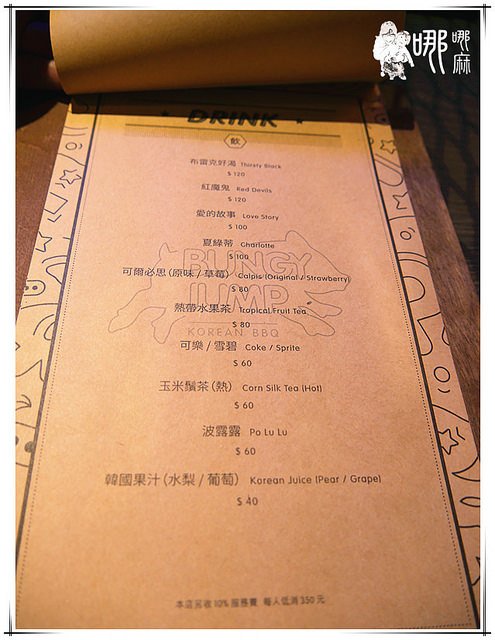 哪哪麻
DRINK
飲
布雷克好渴 Thirsty Black
$ 120
紅魔鬼 Red Devils
$ 120
愛的故事 Love Story
$ 100
夏綠蒂 Charlotte
$ 100
可爾必思(原味/草莓) Calpis (Original / Strawberry)
$ 80
熱帶水果茶 Tropical Fruit Tea
$ 80
可樂/雪碧 Coke / Sprite
$ 60
玉米鬚茶(熱) Corn Silk Tea (Hot)
$ 60
波露露 Po Lu Lu
$ 60
韓國果汁(水梨/葡萄) Korean Juice (Pear / Grape)
$ 40
BUNGY
JUMP
KOREAN BBQ
本店另收10%服務費 每人低消350元